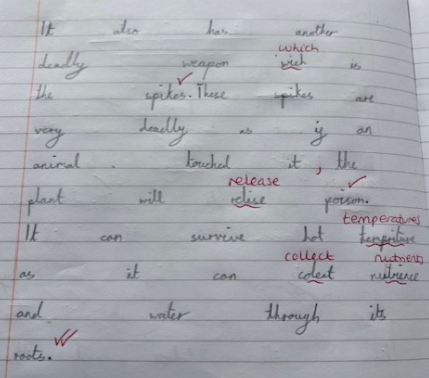 It also has another
which
deadly weapon wich is
the spikes. These spikes are
very deadly as if an
animal touched it, the
release
plant will relise poison.
temperatures
It can survive hot tempriture
collect nutrients
as it can colect nutrience
and water through its
roots.